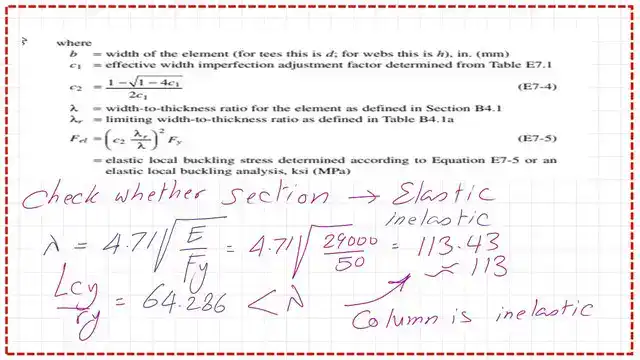 where
b = width of the element (for tees this is d; for webs this is h), in. (mm)
c₁ = effective width imperfection adjustment factor determined from Table E7.1
c₂ = (1 − √(1 − 4c₁)) / 2c₁ (E7-4)
λ = width-to-thickness ratio for the element as defined in Section B4.1
λᵣ = limiting width-to-thickness ratio as defined in Table B4.1a
Fₑₗ = (c₂ λᵣ/λ)² Fy (E7-5)
= elastic local buckling stress determined according to Equation E7-5 or an
elastic local buckling analysis, ksi (MPa)
Check whether section → Elastic
inelastic
λ = 4.71 √(E/Fy) = 4.71 √(29000/50) = 113.43
≈ 113
Lcy/ry = 64.286 < λ
Column is inelastic